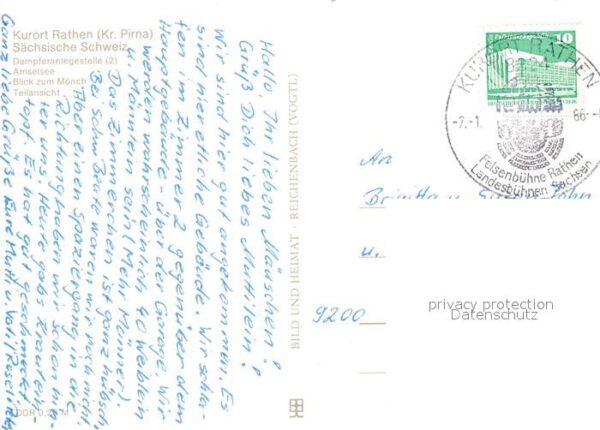 Kurort Rathen (Kr. Pirna)
Sächsische Schweiz
Dampferanlegestelle (2)
Amselsee
Blick zum Mönch
Teilansicht
Hallo, Ihr lieben Mäuschen!
Grüß Dich liebes Muttilein!
Wir sind hier gut angekommen. Es
sind hier etliche Gebäude. Wir schla-
fen im Zimmer 2 gegenüber dem
Hauptgebäude - über der Garage. Wir
werden wahrscheinlich 40 Weiblein
u. Männlein sein (Mehr Männer).
Das Zimmerchen ist ganz hübsch.
Bei waren wir noch nicht.
Aber einen Spaziergang in die
Richtung haben wir schon hin-
ter uns. Heute gabs Krauten-
topf. Es hat gut geschmeckt.
Ganz liebe Grüße Eure Mutti u. Vati / Roseli
DDR 0, M
BILD UND HEIMAT · REICHENBACH (VOGTL)
10
KURORT RATHEN
-7.-1. 86.-
Felsenbühne Rathen
Landesbühnen Sachsen
An
Brigitte u.
u.
9200
privacy protection
Datenschutz